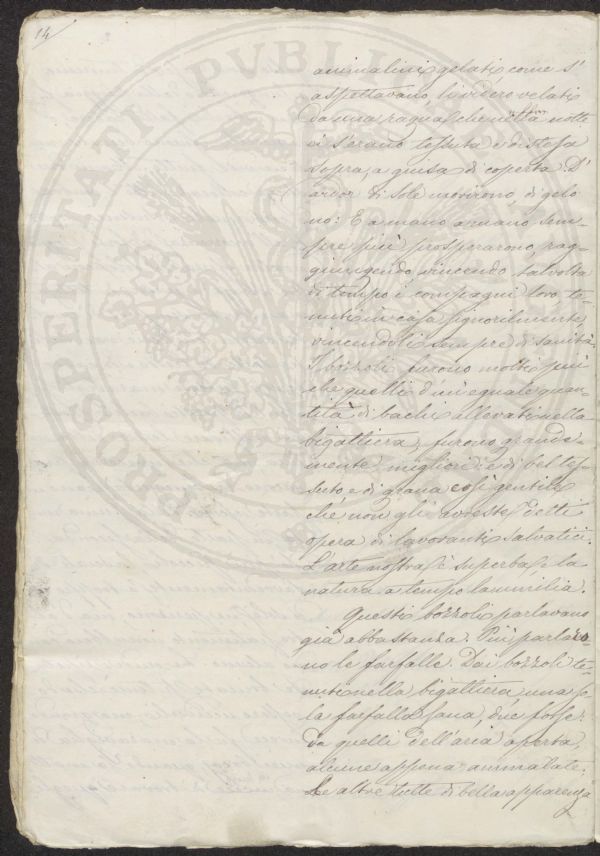 14
animalini gelati come s'
aspettavano, li videro velati
da una ragna che nella notte
si s'erano tessuta e distesa
sopra, a guisa di coperta. D'
ardor di sole morirono, di gelo
no: E a mano a mano sem-
pre più prosperarono, rag-
giungendo, vincendo talvolta
di tempo i compagni loro te-
nuti in casa signorilmente,
vincendoli sempre di sanità.
I bozzoli furono molti più
che quelli d'un'eguale quan-
tità di bachi allevati nella
bigattiera, furono grande-
mente migliori: e di bel tes-
suto, e di grana così gentile
che non gli avreste detti
opera di lavoranti salvatici.
L'arte nostra è superba, e la
natura a tempo la umilia.
Questi bozzoli parlavano
già abbastanza. Più parlaro-
no le farfalle. Dai bozzoli te-
nuti nella bigattiera una so-
la farfalla sana, due forse:
da quelli dell'aria aperta,
alcune appena ammalate.
Le altre tutte di bella apparenza
PROSPERITATI PVBLICAE